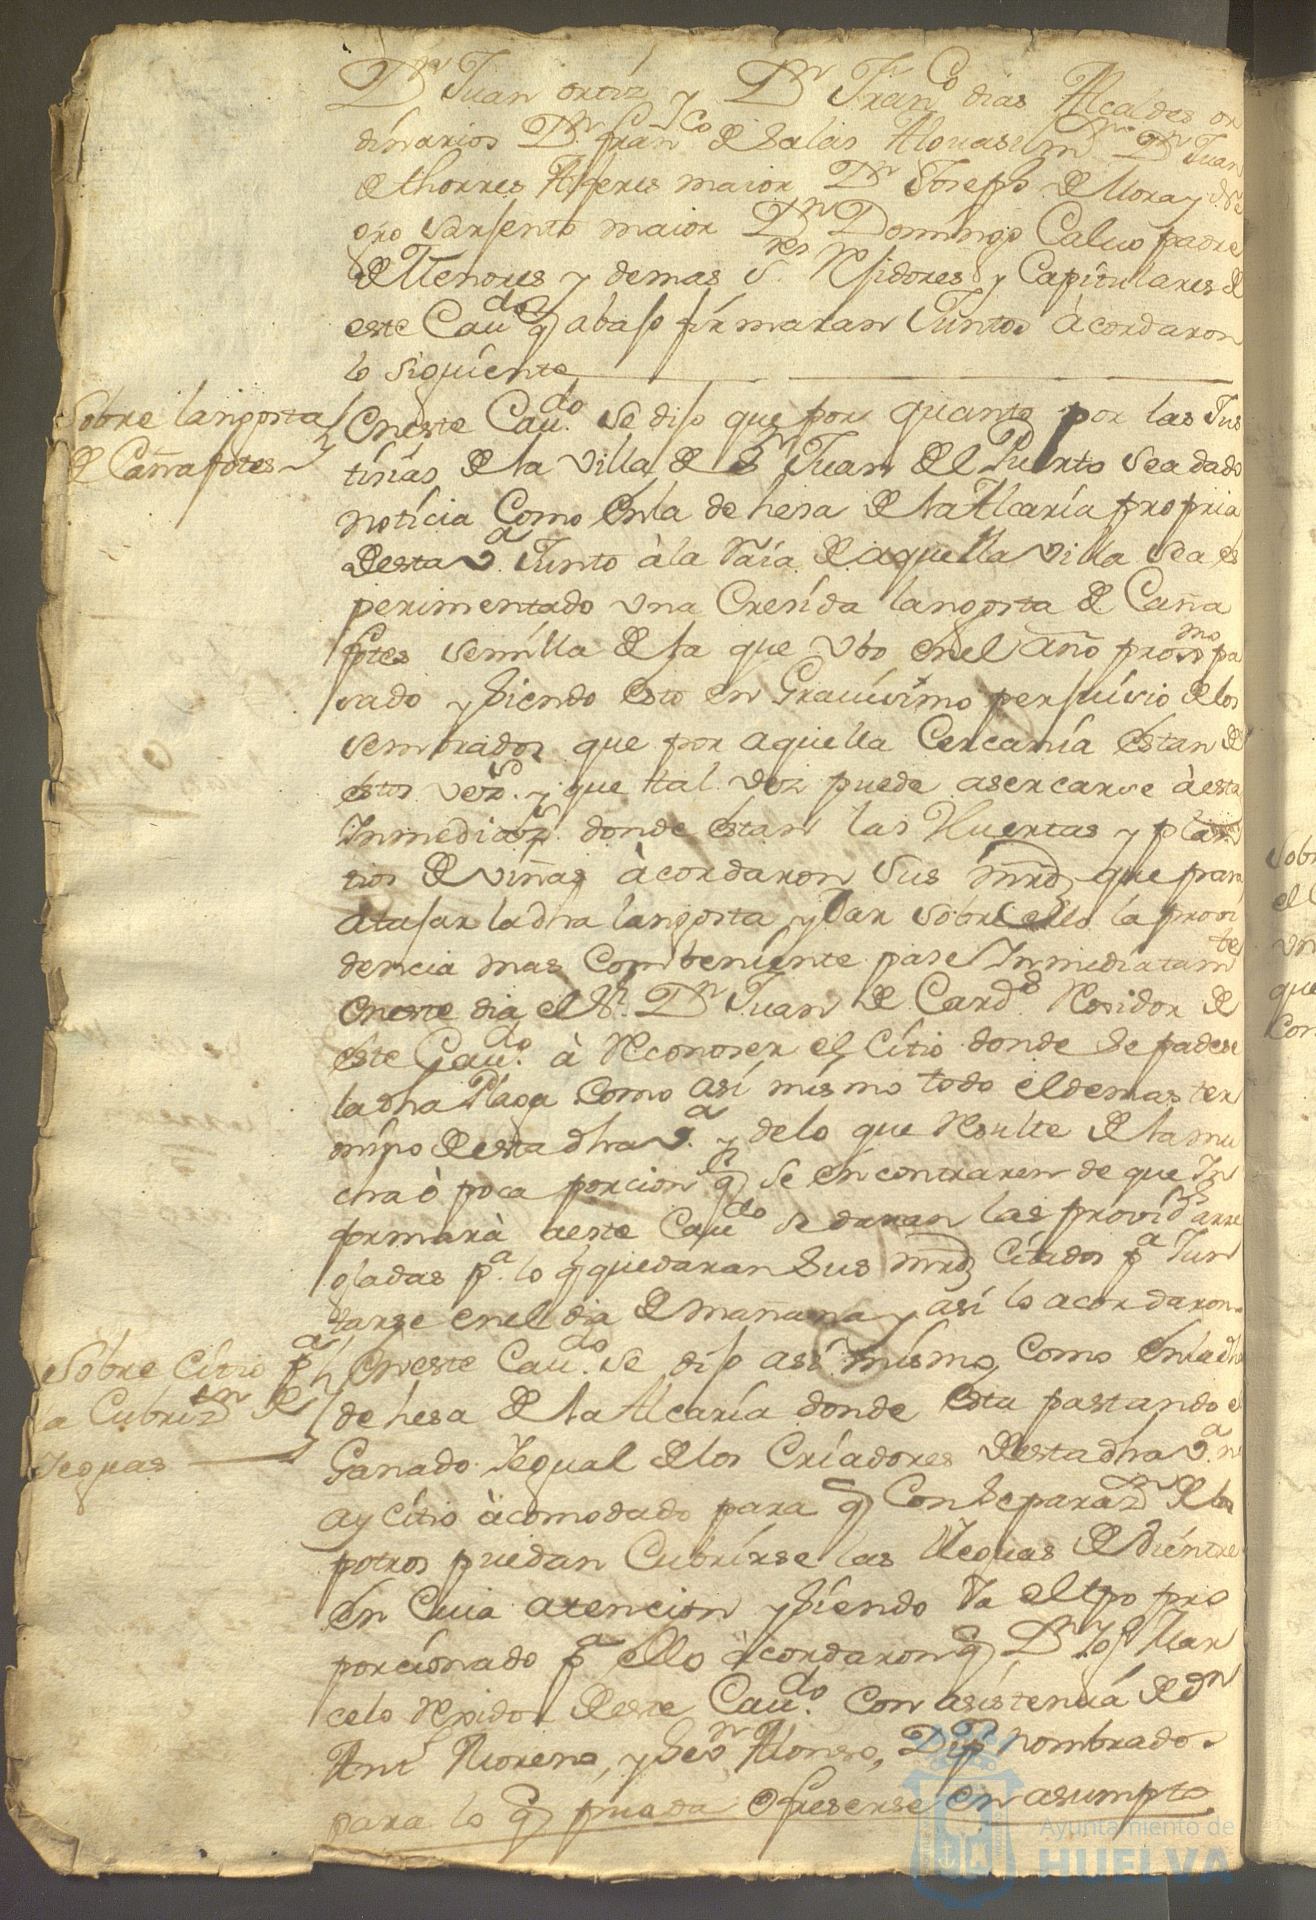 Dn Juan ortiz y Dn Franco dias Alcaldes or
dinarios Dn franco de Salas Alguasil mr Dn Juan
de thorres Alferes maior Dn Joseph de Mora y
oño Sarsento maior Dn Domingo Caluo padre
de Menores y demas Sres Rexidores y Capitulares de
este Caudo q abajo firmaran Juntos àcordaron
lo siguiente
Sobre langosta
de Cañafotes
En este Caudo se dijo que por quanto por las Jus
tisias de la Villa de Sn Juan del Puerto sea dado
noticia Como en la dehesa de la Alcaria propria
desta Va Junto à la Raia de aquella villa sea es
perimentado una Cresida langosta de Caña
fotes semilla de la que ubo en el año proxmo pa
sado y siendo esto en Grauisimo perjuisio de los
sembrados que por aquella Cercania estan de
estos vezos y que tal vez puede asercarse à esta
Inmediazn donde estan las Huertas y plan
tios de viñas àcordaron Sus mrds que para
atajar la dha langosta y dar sobre ello la provi
dencia mas Combeniente pase Inmediatamte
en este dia el Sr Dn Juan de Cardo Rexidor de
este Caudo à Reconoser el Citio donde Se padese
la dha Plaga Como asi mismo todo el demas ter
mino de esta dha Va y de lo que Resulte de la mu
cha ò poca porcion q se encontraren de que In
formarà a este Caudo se daran las provids arre
gladas pa lo q quedaran Sus mrds Citados pa Jun
tarse en el dia de mañana y asi lo acordaron
Sobre Citio pa
la Cubrizn de
Yeguas
En este Caudo se dijo asi mismo Como en la dha
dehesa de la Alcaria donde esta pastando el
Ganado Yegual de los Criadores desta dha Va no
ay Citio àcomodado para q Con Separazn de los
potros puedan Cubrirse las Yeguas de Vientre
en Cuia atencion y siendo Ya el tpo pro
porcionado pa ello àcordaron q Dn Joph Mar
celo Rexidor de este Caudo Con asistencia de Dn
Ant Moreno, y Sevn Alonso, Dips nombrados
para lo q pueda Ofreserse en asumpto
Ayuntamiento de
HUELVA